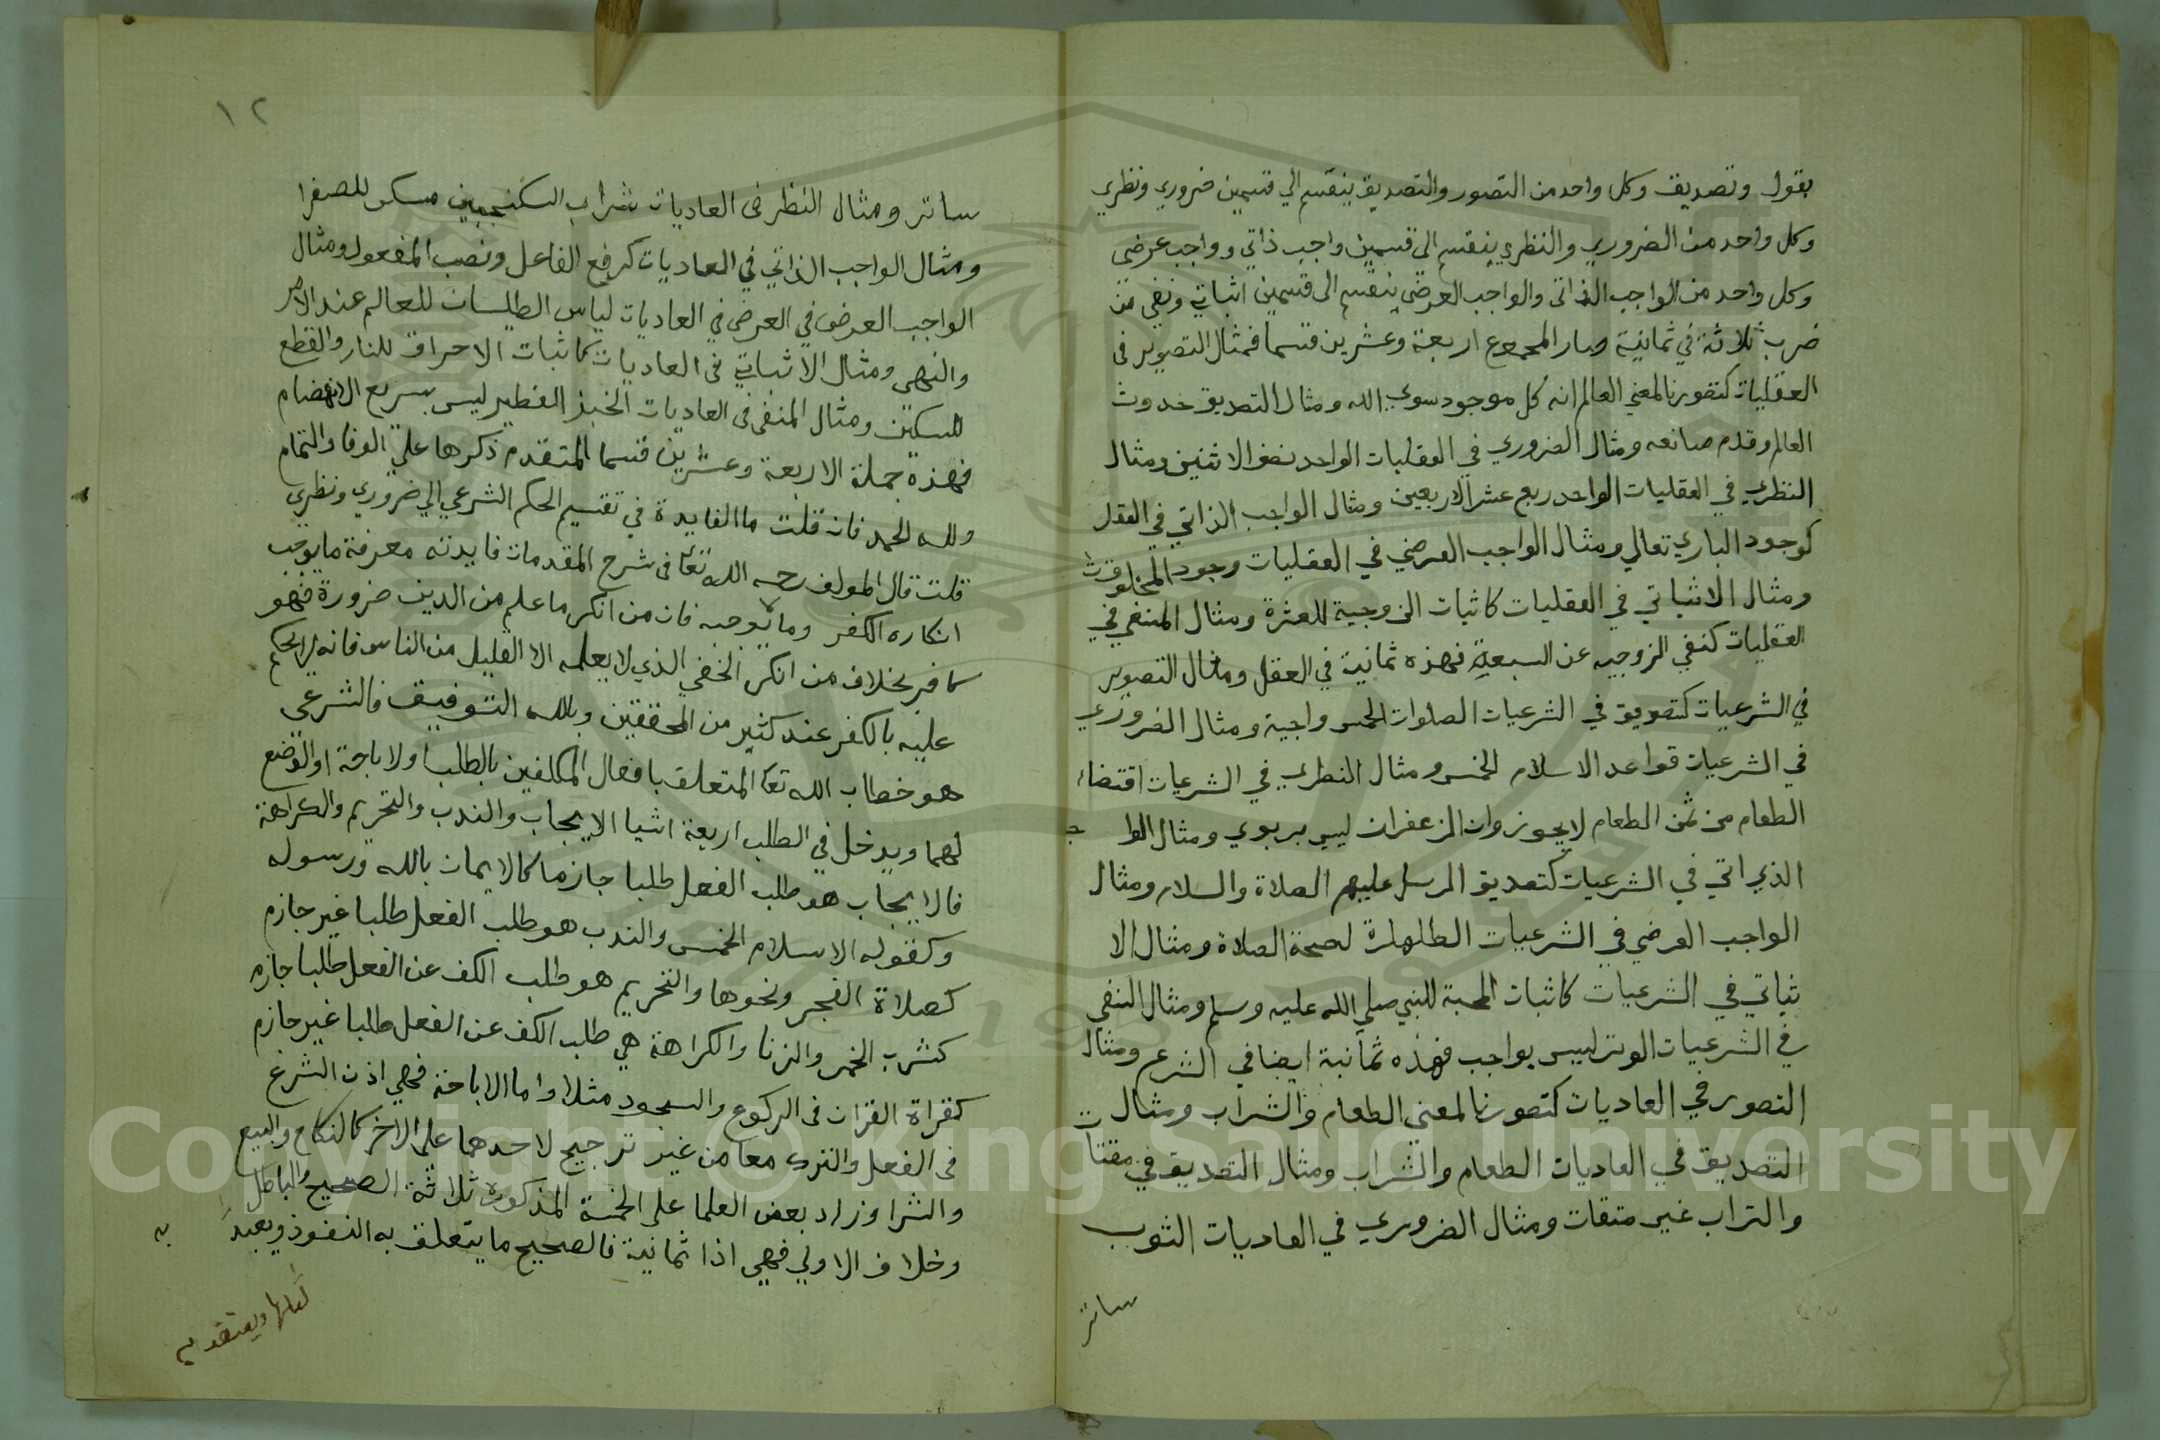 بقول وتصديق وكل واحد من التصور والتصديق ينقسم الي قسمين ضروري ونظري
وكل واحد من الضروري والنظري ينقسم الى قسمين واجب ذاتي وواجب عرضى
وكل واحد من الواجب الذاتى والواجب العرضي ينقسم الى قسمين اثباتي ونفي من
ضرب ثلاثة في ثمانية وصار المجموع اربعة وعشرين قسما فمثال التصوير فى
العقليات كتصورنا لمعني العالم انه كل موجود سوي الله ومثال التصديق حدوث
العالم وقدم صانعه ومثال الضروري في العقليات الواحد نصف الاثنين ومثال
النظري في العقليات الواحد ربع عشر الاربعين ومثال الواجب الذاتي في العقل
كوجود الباري تعالي ومثال الواجب العرضي في العقليات وجود المخلوقات
ومثال الاثباتي في العقليات كاثبات الزوجية للعشرة ومثال المنفي في
العقليات كنفي الزوجيه عن السبعة فهذه ثمانية في العقل ومثال التصوير
في الشرعيات كتصديق في الشرعيات الصلوات الخمس واجبة ومثال الضروري
في الشرعيات قواعد الاسلام الخمس ومثال النظري في الشرعيات اقتضاء
الطعام من ثمن الطعام لا يجوز وان الزعفران ليس بربوي ومثال الوا
جب
الذي اتي في الشرعيات كتصديق المرسل عليهم الصلاة والسلام ومثال
الواجب العرضي في الشرعيات الطهارة لصحة الصلاة ومثال الا
ثباتي في الشرعيات كاثبات المحبة للنبي صلي الله عليه وسلم ومثال النفى
في الشرعيات الوتر ليس بواجب فهذه ثمانية ايضا في الشرع ومثال
التصور في العاديات كتصورنا لمعني الطعام والشراب ومثال
التصديق في العاديات الطعام والشراب ومثال التصديق في مقتات
والتراب غير متقات ومثال الضروري في العاديات الثوب
ساتر
١٢
ساتر ومثال النظر فى العاديات شراب السكنجبين مسكن للصفرا
ومثال الواجب الذاتي في العاديات كرفع الفاعل ونصب المفعول ومثال
الواجب العرض في العرض في العاديات لباس الطيلسان للعالم عند الامر
والنهى ومثال الاثباتي فى العاديات كاثبات الاحراق للنار والقطع
للسكين ومثال المنفى فى العاديات الخبز الفطير ليس بسريع الانهضام
فهذه جملة الاربعة وعشرين قسما المتقدم ذكرها علي الوفا والتمام
ولله الحمد فان قلت ما الفايدة في تقسيم الحكم الشرعي الي ضروري ونظري
قلت قال المولف رحمه الله تعا فى شرح المقدمات فايدته معرفة ما يوجب
انكاره الكفر وما لا يوجبه فان من انكر ما علم من الدين ضرورة فهو
كافر بخلاف من انكر الخفي الذي لا يعلمه الا القليل من الناس فانه لا يحكم
عليه بالكفر عند كثير من المحققين وبالله التوفيق فالشرعي
هو خطاب الله تعا المتعلق بافعال المكلفين بالطلب اولاباحة او الوضع
لهما ويدخل في الطلب اربعة اشيا الايجاب والندب والتحريم والكراهة
فالايجاب هو طلب الفعل طلبا جازما كالايمان بالله ورسوله
وكقوله الاسلام الخمس والندب هو طلب الفعل طلبا غير جازم
كصلاة الفجر ونحوها والتحريم هو طلب الكف عن الفعل طلبا جازم
كشرب الخمر والزنا والكراهة هي طلب الكف عن الفعل طلبا غير جازم
كقراة القران فى الركوع والسجود مثلا واما الاباحة فهي اذن الشرع
فى الفعل والترك معا من غير ترجيح لاحدهما على الاخر كالنكاح والبيع
والشرا وزاد بعض العلما على الخمسة المذكورة ثلاثة الصحيح والباطل
وخلاف الاولي فهي اذا ثمانية فالصحيح ما يتعلق به النفوذ ويعتد
به
Copyright © King Saud University
1957